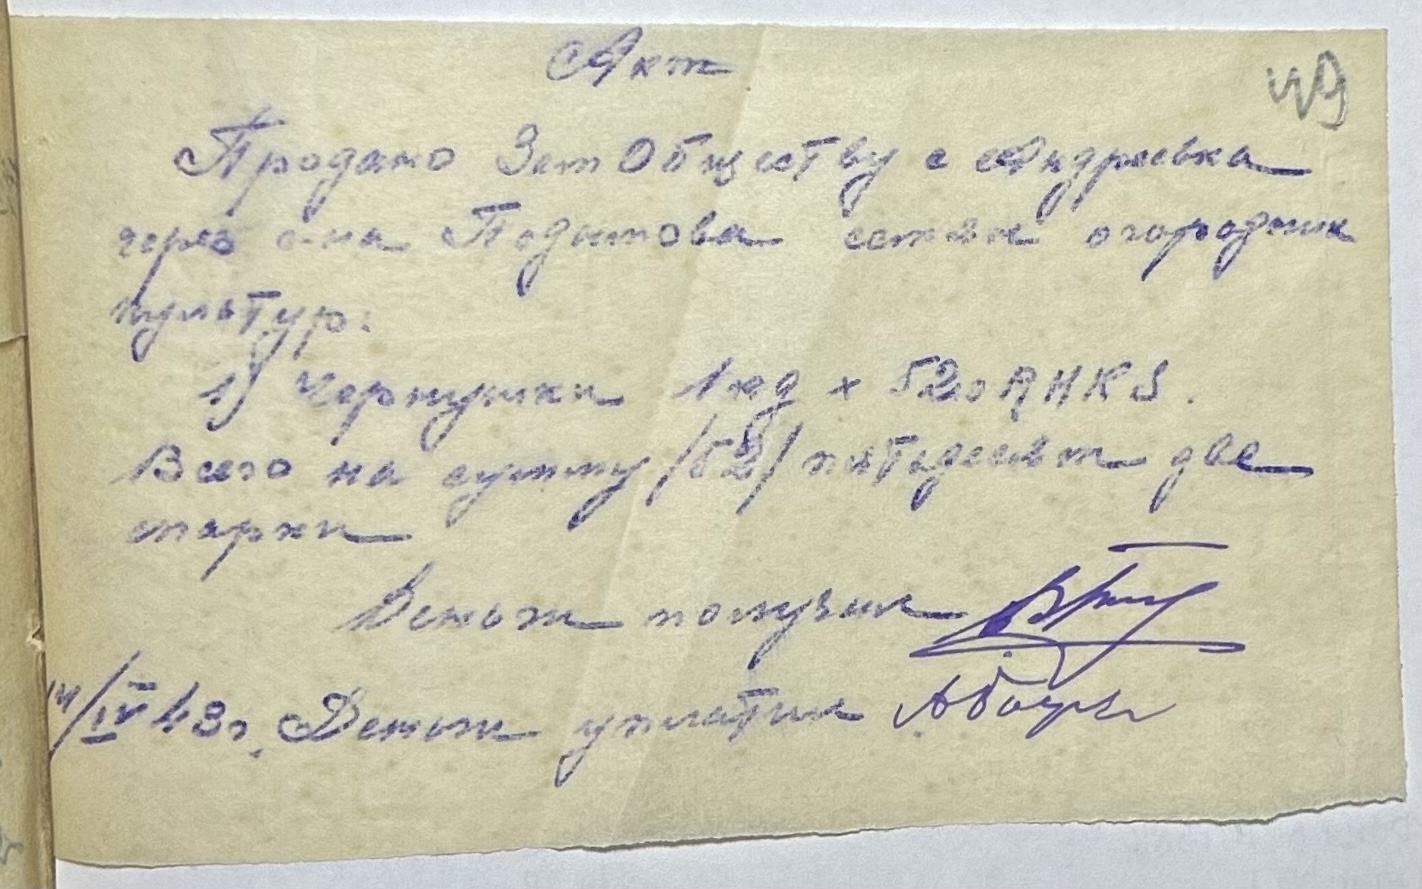 Акт
49
Продано ЗемОбществу с Андреевка
через г-на семян огородних
культур:
1) Чернушки 1 кг х 520 RMKS.
Всего на сумму /52/ пятьдесят две
марки
Деньги получил
14/IV 43 г. Деньги уплатил